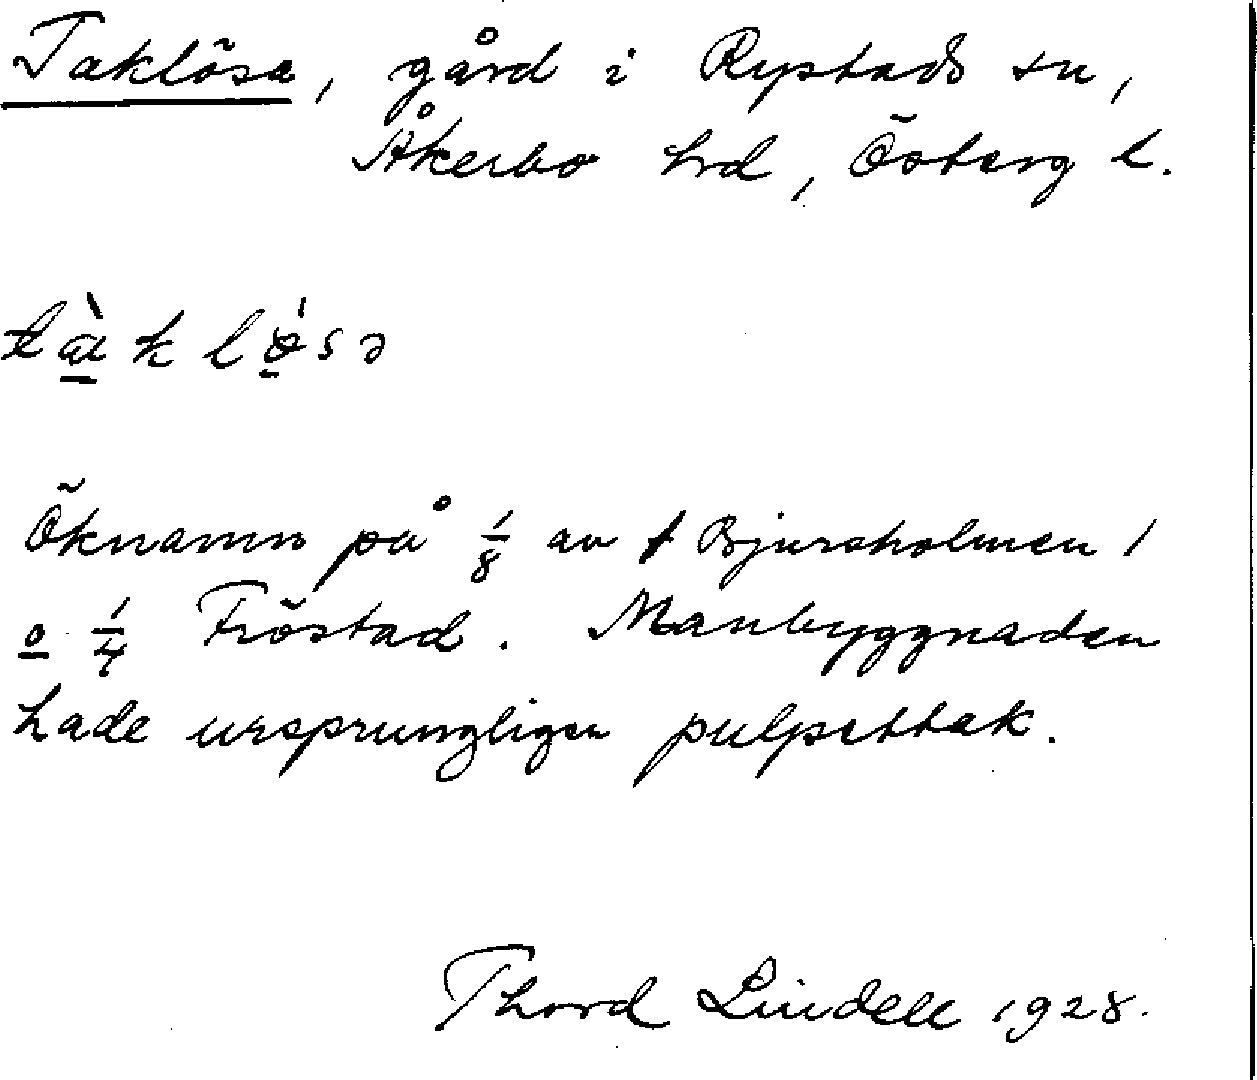 Taklösa, gård i Rystads sn,
Åkerbo hrd, Östergl.
tàklǿsə
Öknamn på 1/8 av Bjursholmen 1
o 1/4 Fröstad. Manbyggnaden
hade ursprungligen pulpettak.
Thord Lindell 1928.